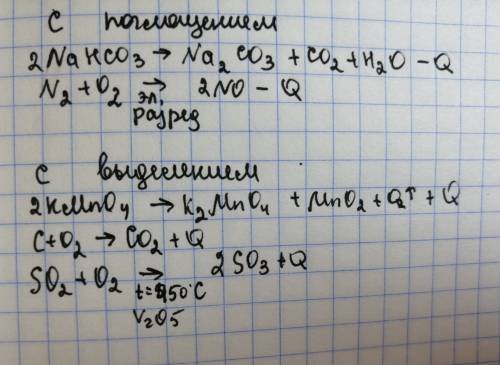 С поглощением
2NaHCO₃ → Na₂CO₃ + CO₂ + H₂O - Q
N₂ + O₂ → 2NO - Q
эл.
разряд
С выделением
2KMnO₄ → K₂MnO₄ + MnO₂ + O₂↑ + Q
C + O₂ → CO₂ + Q
SO₂ + O₂ → 2SO₃ + Q
t = 450°C
V₂O₅